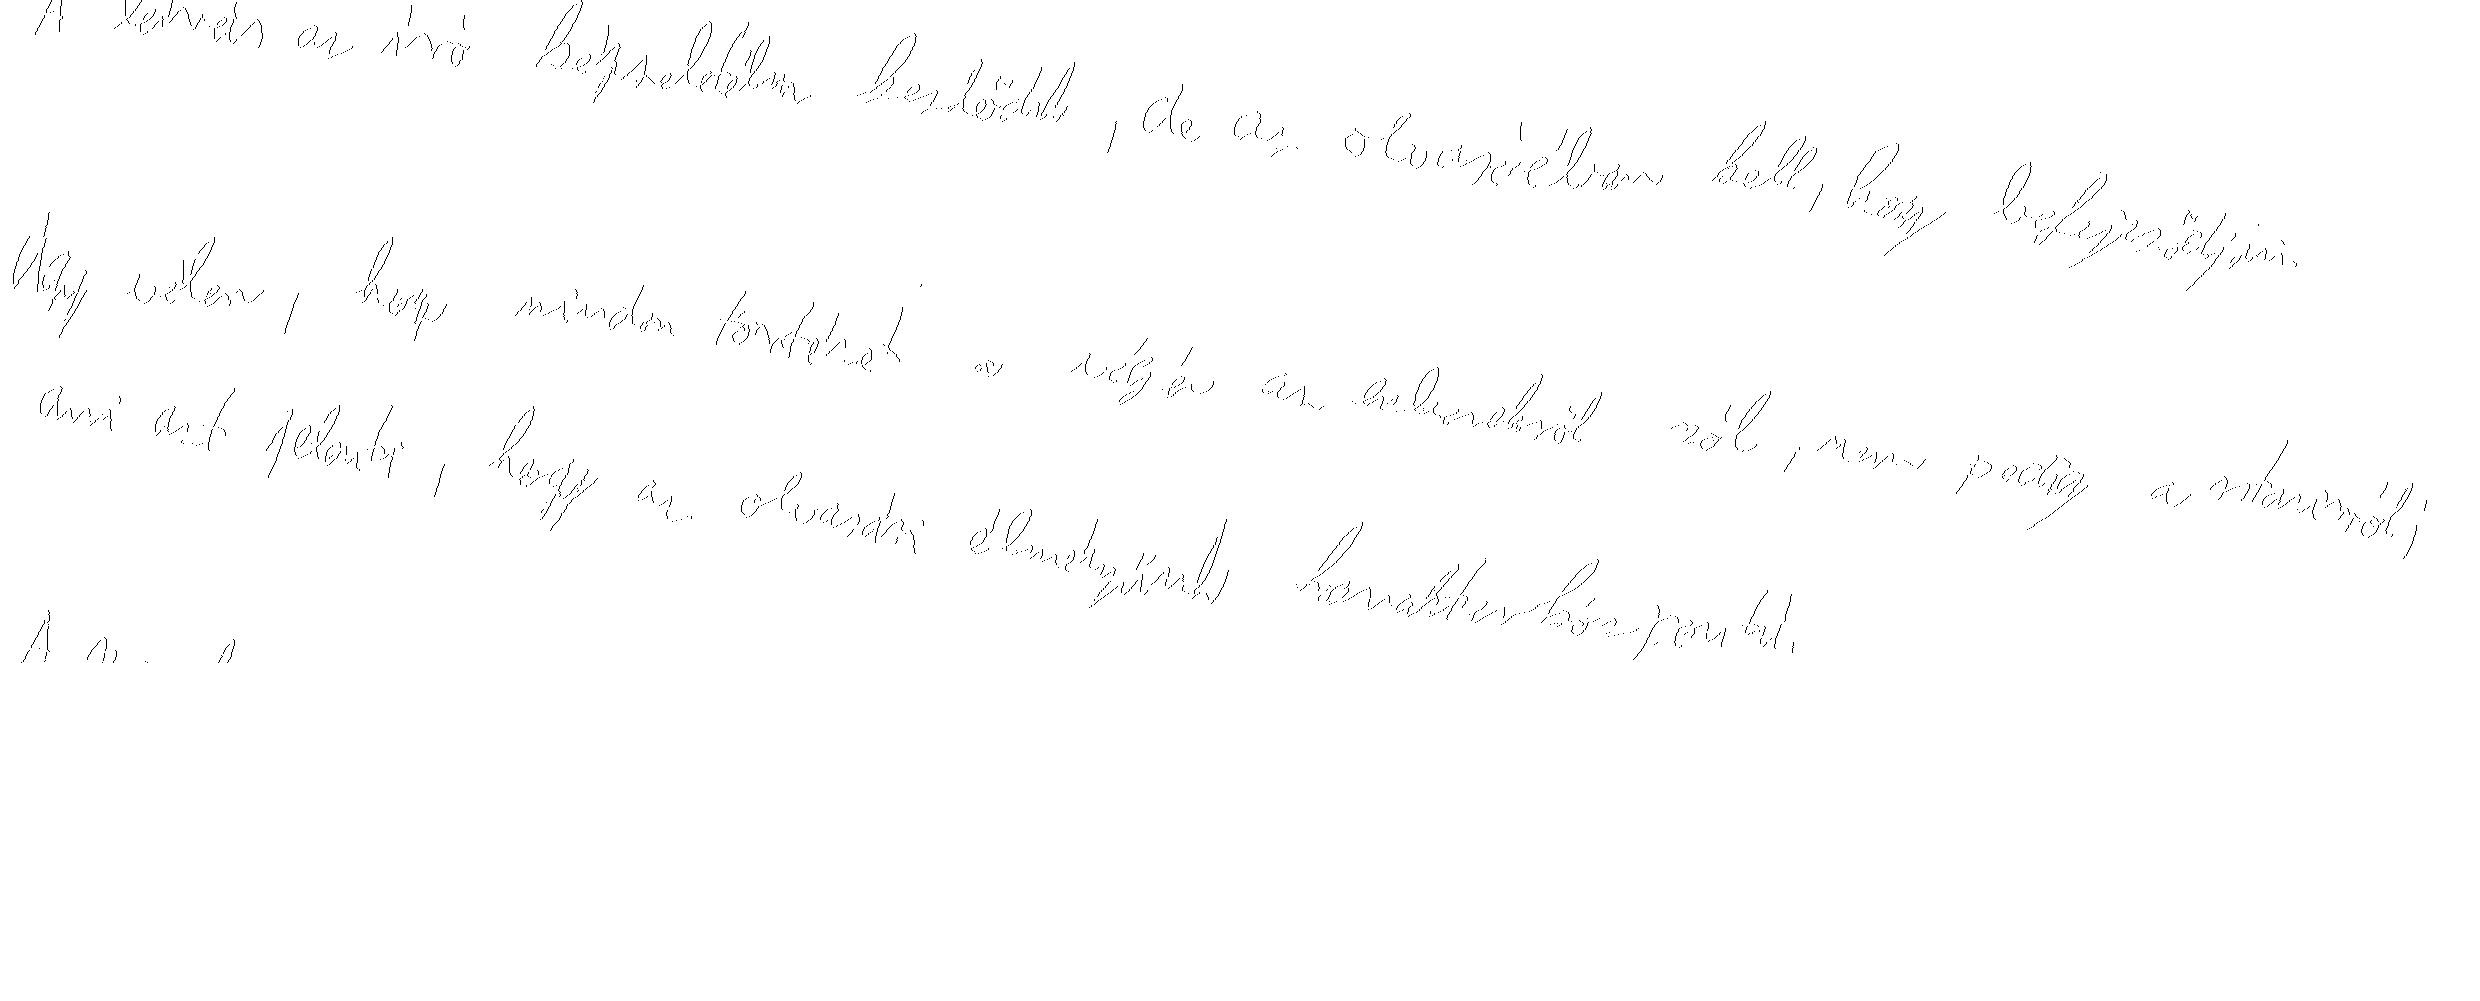 A leírás az író képzeletében kezdődik, de az olvasóéban kell, hogy befejeződjön.
Úgy vélem, hogy minden történet a végén az emberekről szól, nem pedig a sztoriról,
ami azt jelenti, hogy az olvasási élményünk karakterközpontú.
A